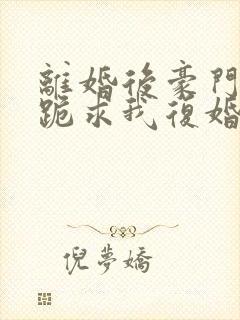 離婚後豪門
跪求我復婚
倪夢嬌